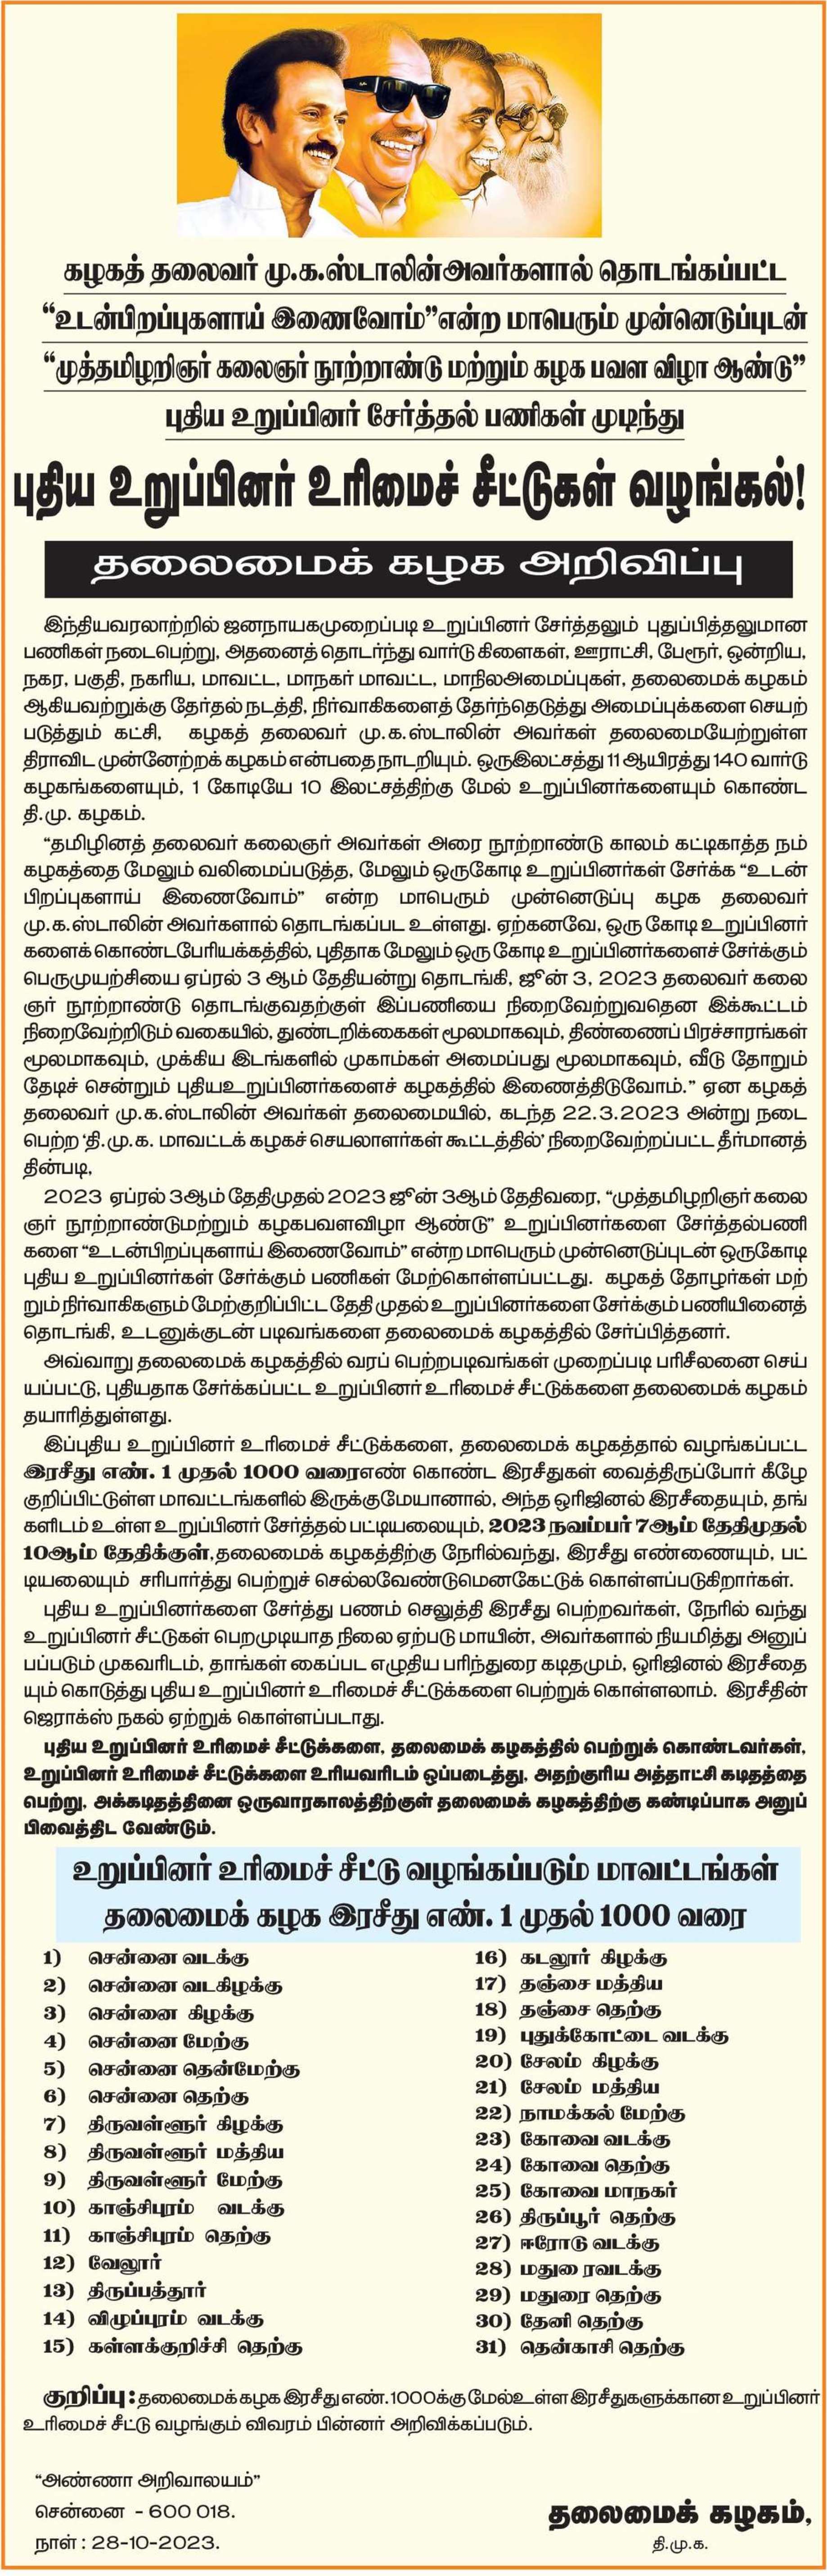 கழகத் தலைவர் மு.க.ஸ்டாலின்அவர்களால் தொடங்கப்பட்ட
“உடன்பிறப்புகளாய் இணைவோம்”என்ற மாபெரும் முன்னெடுப்புடன்
“முத்தமிழறிஞர் கலைஞர் நூற்றாண்டு மற்றும் கழக பவள விழா ஆண்டு”
புதிய உறுப்பினர் சேர்த்தல் பணிகள் முடிந்து
புதிய உறுப்பினர் உரிமைச் சீட்டுகள் வழங்கல்!
தலைமைக் கழக அறிவிப்பு
இந்தியவரலாற்றில் ஜனநாயகமுறைப்படி உறுப்பினர் சேர்த்தலும் புதுப்பித்தலுமான
பணிகள் நடைபெற்று, அதனைத் தொடர்ந்து வார்டு கிளைகள், ஊராட்சி, பேரூர், ஒன்றிய,
நகர, பகுதி, நகரிய, மாவட்ட, மாநகர் மாவட்ட, மாநிலஅமைப்புகள், தலைமைக் கழகம்
ஆகியவற்றுக்கு தேர்தல் நடத்தி, நிர்வாகிகளைத் தேர்ந்தெடுத்து அமைப்புக்களை செயற்
படுத்தும் கட்சி, கழகத் தலைவர் மு.க.ஸ்டாலின் அவர்கள் தலைமையேற்றுள்ள
திராவிட முன்னேற்றக் கழகம் என்பதை நாடறியும். ஒருஇலட்சத்து 11 ஆயிரத்து 140 வார்டு
கழகங்களையும், 1 கோடியே 10 இலட்சத்திற்கு மேல் உறுப்பினர்களையும் கொண்ட
தி.மு. கழகம்.
“தமிழினத் தலைவர் கலைஞர் அவர்கள் அரை நூற்றாண்டு காலம் கட்டிகாத்த நம்
கழகத்தை மேலும் வலிமைப்படுத்த, மேலும் ஒருகோடி உறுப்பினர்கள் சேர்க்க “உடன்
பிறப்புகளாய் இணைவோம்” என்ற மாபெரும் முன்னெடுப்பு கழக தலைவர்
மு.க.ஸ்டாலின் அவர்களால் தொடங்கப்பட உள்ளது. ஏற்கனவே, ஒரு கோடி உறுப்பினர்
களைக் கொண்டபேரியக்கத்தில், புதிதாக மேலும் ஒரு கோடி உறுப்பினர்களைச் சேர்க்கும்
பெருமுயற்சியை ஏப்ரல் 3 ஆம் தேதியன்று தொடங்கி, ஜூன் 3, 2023 தலைவர் கலை
ஞர் நூற்றாண்டு தொடங்குவதற்குள் இப்பணியை நிறைவேற்றுவதென இக்கூட்டம்
நிறைவேற்றிடும் வகையில், துண்டறிக்கைகள் மூலமாகவும், திண்ணைப் பிரச்சாரங்கள்
மூலமாகவும், முக்கிய இடங்களில் முகாம்கள் அமைப்பது மூலமாகவும், வீடு தோறும்
தேடிச் சென்றும் புதியஉறுப்பினர்களைச் கழகத்தில் இணைத்திடுவோம்.” ஏன கழகத்
தலைவர் மு.க.ஸ்டாலின் அவர்கள் தலைமையில், கடந்த 22.3.2023 அன்று நடை
பெற்ற ‘தி.மு.க. மாவட்டக் கழகச் செயலாளர்கள் கூட்டத்தில்’ நிறைவேற்றப்பட்ட தீர்மானத்
தின்படி,
2023 ஏப்ரல் 3ஆம் தேதிமுதல் 2023 ஜூன் 3ஆம் தேதிவரை, “முத்தமிழறிஞர் கலை
ஞர் நூற்றாண்டுமற்றும் கழகபவளவிழா ஆண்டு” உறுப்பினர்களை சேர்த்தல்பணி
களை “உடன்பிறப்புகளாய் இணைவோம்” என்ற மாபெரும் முன்னெடுப்புடன் ஒருகோடி
புதிய உறுப்பினர்கள் சேர்க்கும் பணிகள் மேற்கொள்ளப்பட்டது. கழகத் தோழர்கள் மற்
றும் நிர்வாகிகளும் மேற்குறிப்பிட்ட தேதி முதல் உறுப்பினர்களை சேர்க்கும் பணியினைத்
தொடங்கி, உடனுக்குடன் படிவங்களை தலைமைக் கழகத்தில் சேர்ப்பித்தனர்.
அவ்வாறு தலைமைக் கழகத்தில் வரப் பெற்றபடிவங்கள் முறைப்படி பரிசீலனை செய்
யப்பட்டு, புதியதாக சேர்க்கப்பட்ட உறுப்பினர் உரிமைச் சீட்டுக்களை தலைமைக் கழகம்
தயாரித்துள்ளது.
இப்புதிய உறுப்பினர் உரிமைச் சீட்டுக்களை, தலைமைக் கழகத்தால் வழங்கப்பட்ட
இரசீது எண். 1 முதல் 1000 வரைஎண் கொண்ட இரசீதுகள் வைத்திருப்போர் கீழே
குறிப்பிட்டுள்ள மாவட்டங்களில் இருக்குமேயானால், அந்த ஒரிஜினல் இரசீதையும், தங்
களிடம் உள்ள உறுப்பினர் சேர்த்தல் பட்டியலையும், 2023 நவம்பர் 7ஆம் தேதிமுதல்
10ஆம் தேதிக்குள்,தலைமைக் கழகத்திற்கு நேரில்வந்து, இரசீது எண்ணையும், பட்
டியலையும் சரிபார்த்து பெற்றுச் செல்லவேண்டுமெனகேட்டுக் கொள்ளப்படுகிறார்கள்.
புதிய உறுப்பினர்களை சேர்த்து பணம் செலுத்தி இரசீது பெற்றவர்கள், நேரில் வந்து
உறுப்பினர் சீட்டுகள் பெறமுடியாத நிலை ஏற்படு மாயின், அவர்களால் நியமித்து அனுப்
பப்படும் முகவரிடம், தாங்கள் கைப்பட எழுதிய பரிந்துரை கடிதமும், ஒரிஜினல் இரசீதை
யும் கொடுத்து புதிய உறுப்பினர் உரிமைச் சீட்டுக்களை பெற்றுக் கொள்ளலாம். இரசீதின்
ஜெராக்ஸ் நகல் ஏற்றுக் கொள்ளப்படாது.
புதிய உறுப்பினர் உரிமைச் சீட்டுக்களை, தலைமைக் கழகத்தில் பெற்றுக் கொண்டவர்கள்,
உறுப்பினர் உரிமைச் சீட்டுக்களை உரியவரிடம் ஒப்படைத்து, அதற்குரிய அத்தாட்சி கடிதத்தை
பெற்று, அக்கடிதத்தினை ஒருவாரகாலத்திற்குள் தலைமைக் கழகத்திற்கு கண்டிப்பாக அனுப்
பிவைத்திட வேண்டும்.
உறுப்பினர் உரிமைச் சீட்டு வழங்கப்படும் மாவட்டங்கள்
தலைமைக் கழக இரசீது எண். 1 முதல் 1000 வரை
1) சென்னை வடக்கு
2) சென்னை வடகிழக்கு
3) சென்னை கிழக்கு
4) சென்னை மேற்கு
5) சென்னை தென்மேற்கு
6) சென்னை தெற்கு
7) திருவள்ளூர் கிழக்கு
8) திருவள்ளூர் மத்திய
9) திருவள்ளூர் மேற்கு
10) காஞ்சிபுரம் வடக்கு
11) காஞ்சிபுரம் தெற்கு
12) வேலூர்
13) திருப்பத்தூர்
14) விழுப்புரம் வடக்கு
15) கள்ளக்குறிச்சி தெற்கு
16) கடலூர் கிழக்கு
17) தஞ்சை மத்திய
18) தஞ்சை தெற்கு
19) புதுக்கோட்டை வடக்கு
20) சேலம் கிழக்கு
21) சேலம் மத்திய
22) நாமக்கல் மேற்கு
23) கோவை வடக்கு
24) கோவை தெற்கு
25) கோவை மாநகர்
26) திருப்பூர் தெற்கு
27) ஈரோடு வடக்கு
28) மதுரை ரவடக்கு
29) மதுரை தெற்கு
30) தேனி தெற்கு
31) தென்காசி தெற்கு
குறிப்பு : தலைமைக் கழக இரசீது எண். 1000க்கு மேல் உள்ள இரசீதுகளுக்கான உறுப்பினர்
உரிமைச் சீட்டு வழங்கும் விவரம் பின்னர் அறிவிக்கப்படும்.
“அண்ணா அறிவாலயம்”
சென்னை - 600 018.
நாள் : 28-10-2023.
தலைமைக் கழகம்,
தி.மு.க.